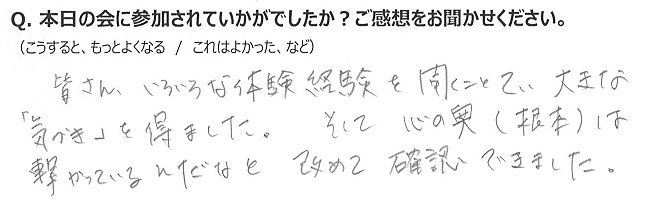 Q. 本日の会に参加されていかがでしたか？ご感想をお聞かせください。
（こうすると、もっとよくなる / これはよかった、など）
皆さん、いろいろな体験経験を聞くことで、大きな
「気づき」を得ました。そして心の奥（根本）は
繋がっているんだなと改めて確認できました。